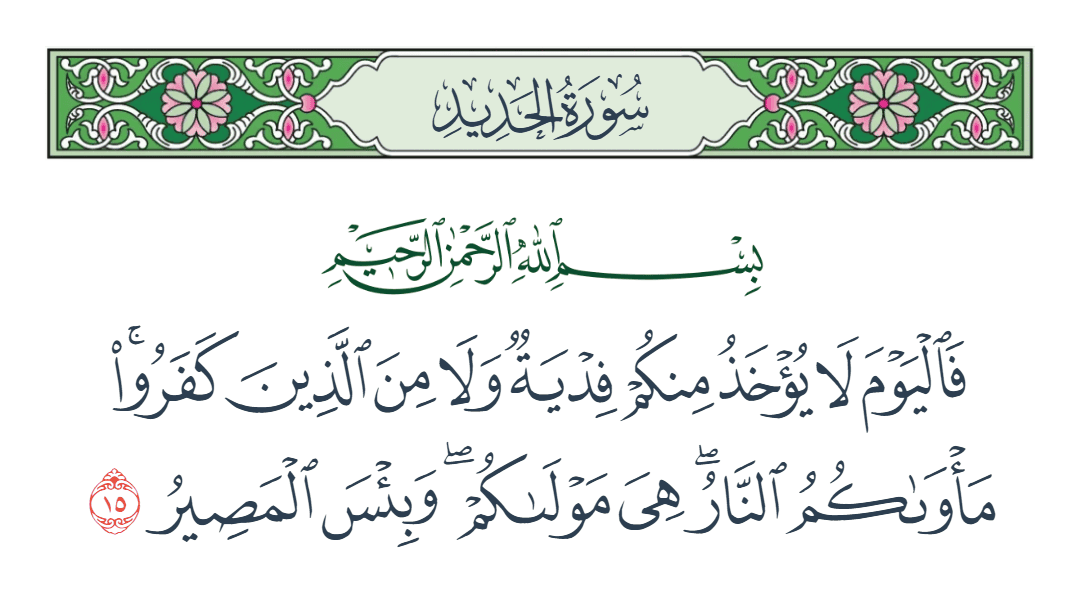 سُورَةُ الحَدِيدِ
بِسْمِ ٱللَّهِ ٱلرَّحْمَٰنِ ٱلرَّحِيمِ
فَٱلْيَوْمَ لَا يُؤْخَذُ مِنكُمْ فِدْيَةٌ وَلَا مِنَ ٱلَّذِينَ كَفَرُوا۟ ۚ
مَأْوَىٰكُمُ ٱلنَّارُ ۖ هِىَ مَوْلَىٰكُمْ ۖ وَبِئْسَ ٱلْمَصِيرُ ١٥